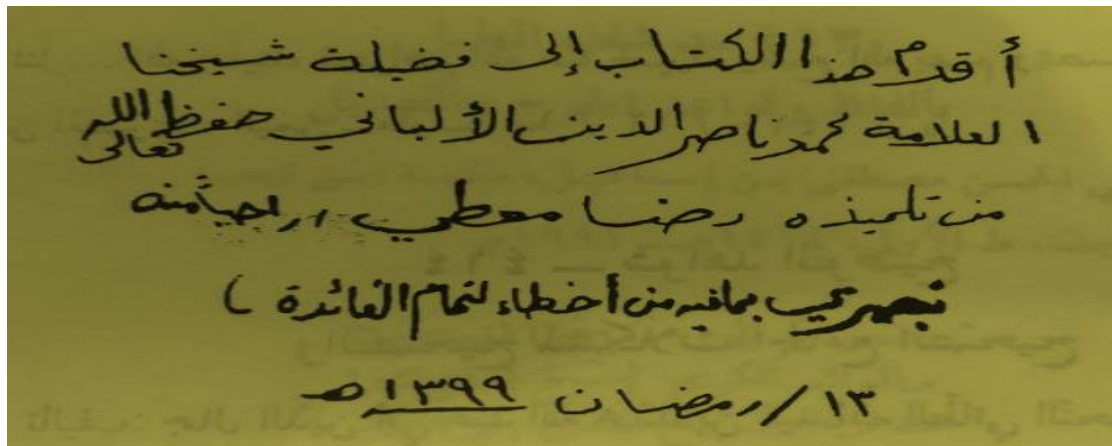 أقدم هذا الكتاب إلى فضيلة شيخنا
العلامة محمد ناصر الدين الألباني حفظه الله تعالى
من تلميذه رضا معطي، راجياً منه
تبصيري بما فيه من أخطاء لتمام الفائدة )
١٣/رمضان ١٣٩٩هـ